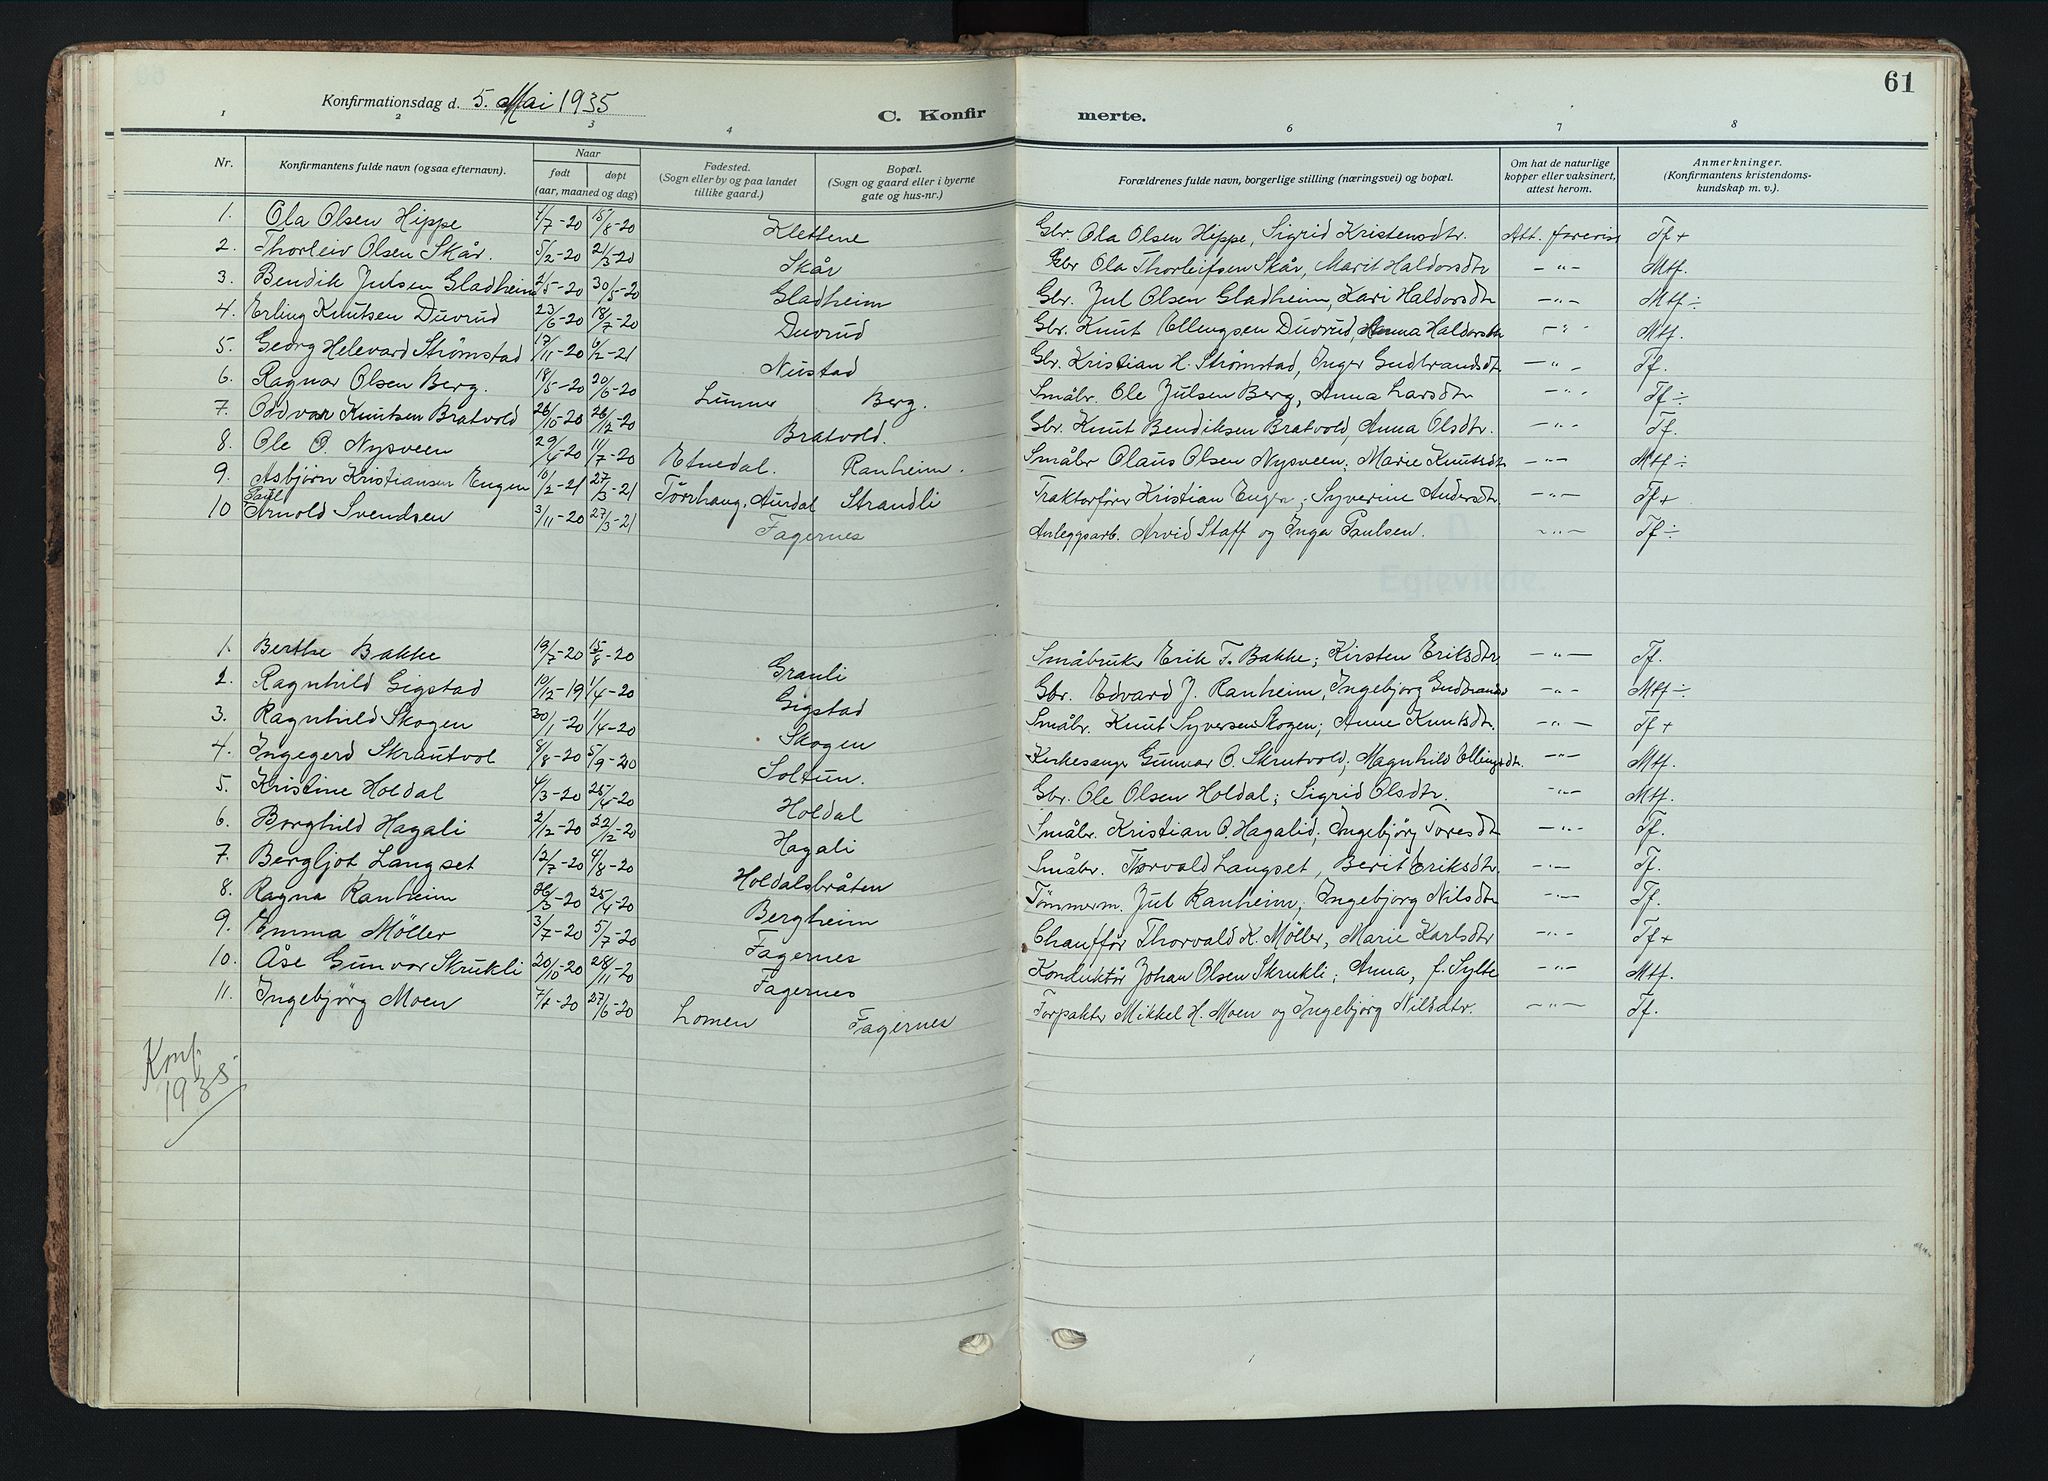 61
Konfirmationsdag d. 5. Mai 1935
C. Konfir merte.
1 2 3 4 6 7 8
Nr. Konfirmantens fulde navn (ogsaa efternavn). Naar født døpt (aar, maaned og dag) Fødested. (Sogn eller by og paa landet tillike gaard.) Bopæl. (Sogn og gaard eller i byerne gate og hus-nr.) Forældrenes fulde navn, borgerlige stilling (næringsvei) og bopæl. Om hat de naturlige kopper eller vaksinert, attest herom. Anmerkninger. (Konfirmantens kristendoms- kundskap m. v.).
1. Ola Olsen Hippe 1/7-20 15/8-20 Klettene Gbr. Ola Olsen Hippe, Sigrid Kristensdtr. Att. forevist Tf+
2. Thorleiv Olsen Skår. 5/2-20 21/3-20 Skår Gbr Ola Thorleifsen Skår, Marit Haldorsdtr -"- Mtf.
3. Bendik Julsen Gladheim 2/5-20 30/5-20 Gladheim Gbr. Jul Olsen Gladheim, Kari Haldorsdtr -"- Mtf÷
4. Erling Knutsen Duvrud 23/6-20 18/7-20 Duvrud Gbr. Knut Ellingsen Duvrud, Anna Haldorsdtr -"- Mtf.
5. Georg Helevard Strømstad 17/11-20 6/2-21 Nustad Gbr. Kristian H. Strømstad, Inger Gudbrandsdtr -"- Tf.
6. Ragnar Olsen Berg. 18/5-20 20/6-20 Lunner Berg. Småbr. Ole Julsen Berg, Anna Larsdtr -"- Tf÷
7. Oddvar Knutsen Bratvold 26/10-20 26/12-20 Bratvold. Gbr. Knut Bendiksen Bratvold, Anna Olsdtr. -"- Tf.
8. Ole O. Nysveen 29/4-20 11/7-20 Etnedal. Ranheim. Småbr Olaus Olsen Nysveen; Marie Knutsdtr -"- Mtf÷
9. Asbjørn Kristiansen Engen 10/2-21 27/3-21 Tørrhaug, Aurdal Strandli Traktorfører Kristian Engen; Syverine Andersdtr. -"- Tf+
10 Paul Arnold Svendsen 3/11-20 27/3-21 Fagernes Anleggsarb. Arvid Staff og Inga Paulsen. -"- Tf÷
1. Berthe Bakke 19/7-20 15/8-20 Granli Småbruker Erik T. Bakke; Kirsten Eriksdtr -"- Tf.
2. Ragnhild Gigstad 10/12-19 1/4-20 Gigstad Gbr. Edvard J. Ranheim, Ingebjørg Gudbrandsd -"- Mtf÷
3. Ragnhild Skogen 30/1-20 1/4-20 Skogen Småbr. Knut Syversen Skogen; Anne Knutsdtr. -"- Tf+
4. Ingegerd Skrautvol 8/8-20 5/9-20 Soltun. Kirkesanger Gunnar O. Skrutvold; Magnhild Ellingsdtr. -"- Mtf.
5. Kristine Holdal 4/3-20 25/4-20 Holdal Gbr. Ole Olsen Holdal; Sigrid Olsdtr. -"- Mtf.
6. Borghild Hagali 2/12-20 22/12-20 Hagali Småbr. Kristian O. Hagalid; Ingebjørg Toresdtr -"- Tf.
7. Bergljot Langset 12/7-20 4/8-20 Holdalsbråten Småbr. Thorvald Langset, Berit Eriksdtr. -"- Tf.
8. Ragna Ranheim 26/3-20 25/4-20 Bergheim Tømmerm. Jul Ranheim; Ingebjørg Nilsdtr -"- Tf.
9. Emma Møller 3/7-20 5/7-20 Fagernes Chauffør Thorvald K. Møller, Marie Karlsdtr -"- Tf+
10. Åse Gunvor Skrukli 20/10-20 28/11-20 Fagernes Konduktør Johan Olsen Skrukli; Anna, f. Sylte -"- Mtf.
11. Ingebjørg Moen 7/4-20 27/6-20 Lomen Fagernes Forpakter Mikkel H. Moen og Ingebjørg Nilsdtr. -"- Tf.
Konf. 1935